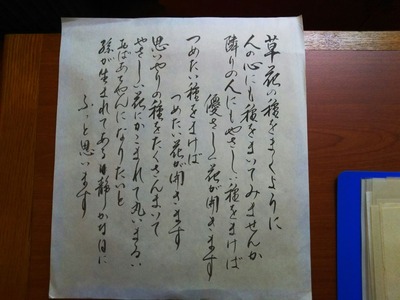 草花の種をまくように
人の心にも種をまいてみませんか
隣りの人にもやさしい種をまけば
優さしい花が開きます
つめたい種をまけば
つめたい花が開きます
思いやりの種をたくさんまいて
やさしい花にかこまれて丸いまるい
おばあちゃんになりたいと
孫が生まれてある日静かな日に
ふっと思います